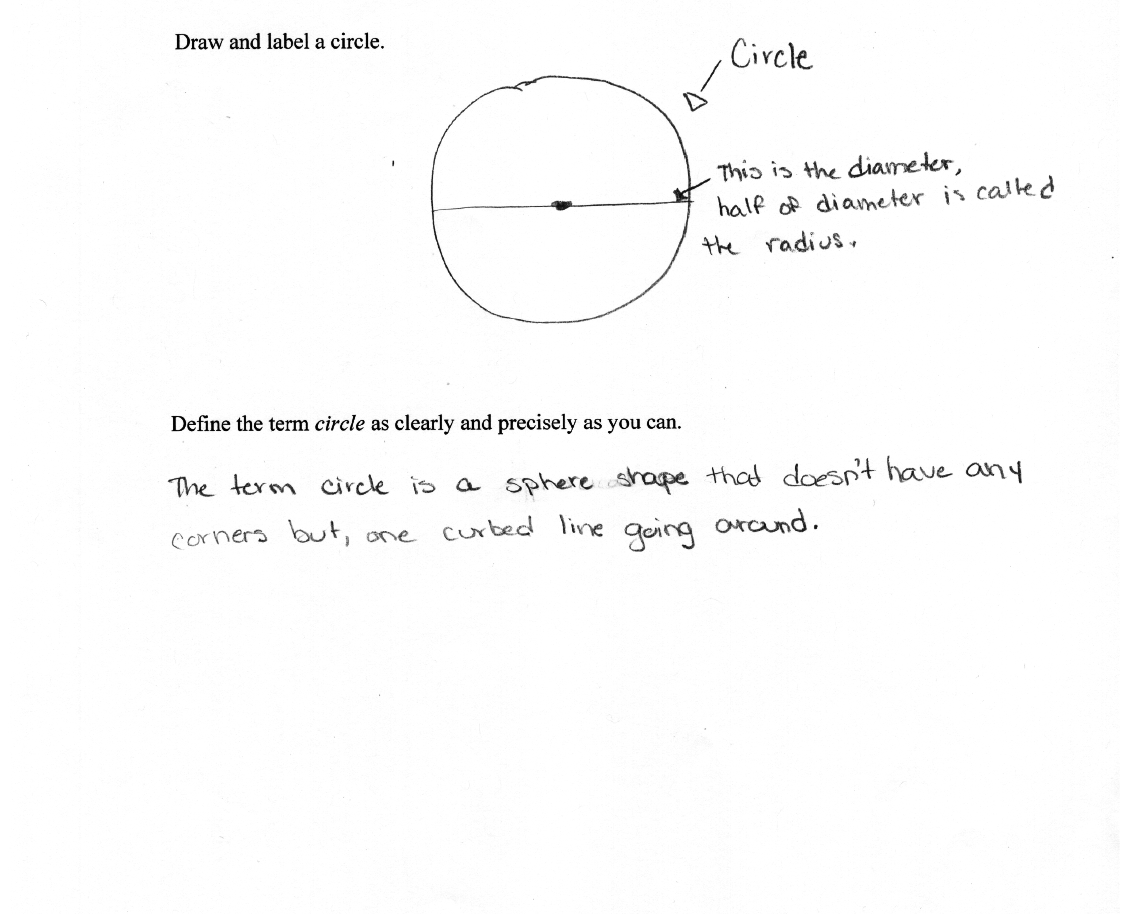 Draw and label a circle.
Circle
This is the diameter,
half of diameter is called
the radius.
Define the term circle as clearly and precisely as you can.
The term circle is a sphere shape that doesn't have any
corners but, one curbed line going around.